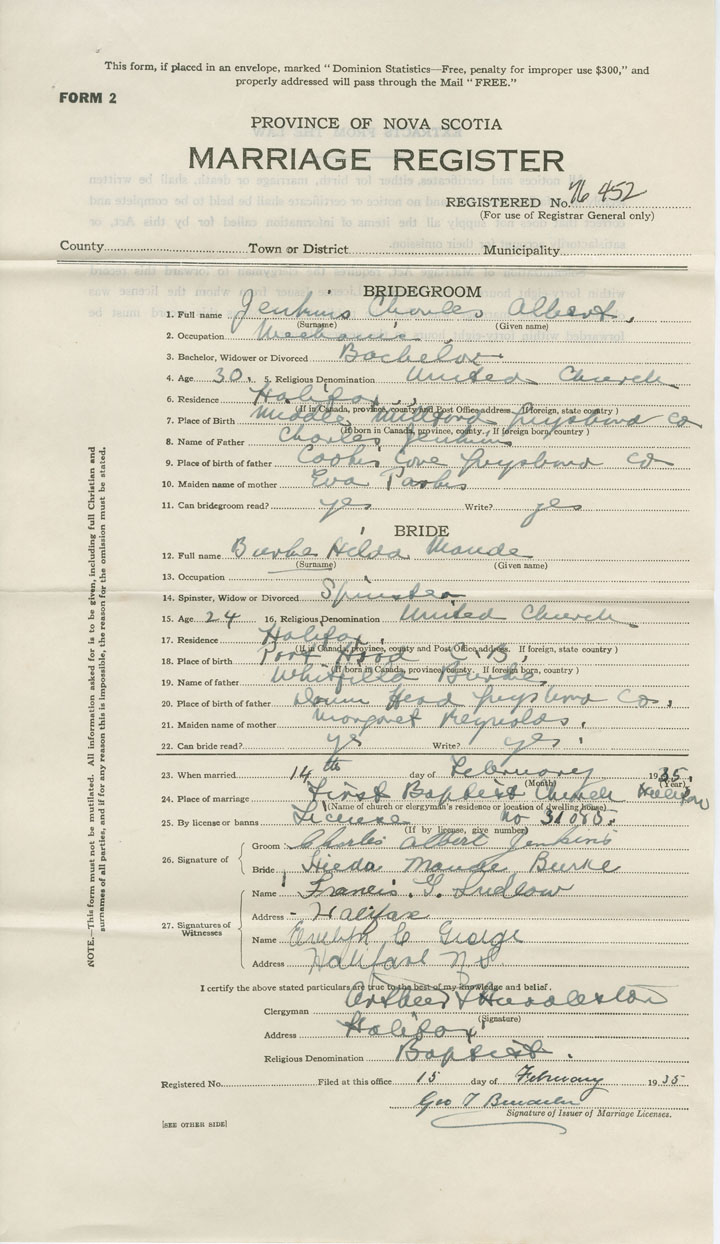 This form, if placed in an envelope, marked "Dominion Statistics—Free, penalty for improper use $300," and
properly addressed will pass through the Mail "FREE."
FORM 2
PROVINCE OF NOVA SCOTIA
MARRIAGE REGISTER
REGISTERED No. 452
(For use of Registrar General only)
County Town or District Municipality
BRIDEGROOM
1. Full name Jenkins Charles Albert
(Surname) (Given name)
2. Occupation Mechanic
3. Bachelor, Widower or Divorced Bachelor
4. Age 30 5. Religious Denomination United Church
6. Residence Halifax
(If in Canada, province, county and Post Office address. If foreign, state country)
7. Place of Birth Middle Milford Guysboro Co
(If born in Canada, province, county. If foreign born, country)
8. Name of Father Charles Jenkins
9. Place of birth of father Cooks Cove Guysboro Co
10. Maiden name of mother Eva
11. Can bridegroom read? yes Write? yes
BRIDE
12. Full name Burke Hilda Maude
(Surname) (Given name)
13. Occupation
14. Spinster, Widow or Divorced Spinster
15. Age 24 16. Religious Denomination United Church
17. Residence Halifax
(If in Canada, province, county and Post Office address. If foreign, state country)
18. Place of birth Port Hood C.B.
(If born in Canada, province, county. If foreign born, country)
19. Name of father Whitfield Burke
20. Place of birth of father Head Guysboro Co.
21. Maiden name of mother Margaret Reynolds.
22. Can bride read? yes Write? yes
23. When married 14th day of February 1935.
(Month) (Year)
24. Place of marriage First Baptist Church Halifax
(Name of church or clergyman's residence or location of dwelling house)
25. By license or banns License no 31085.
(If by license, give number)
26. Signature of
Groom Charles Albert Jenkins
Bride Hilda Maude Burke
27. Signatures of Witnesses
Name Francis. G. Ludlow
Address - Halifax
Name Evelyn C George
Address Halifax N S
I certify the above stated particulars are true to the best of my knowledge and belief.
Clergyman Huddleston
(Signature)
Address Halifax
Religious Denomination Baptist.
Registered No. Filed at this office 15 day of February 1935
Geo T
Signature of Issuer of Marriage Licenses.
[SEE OTHER SIDE]
NOTE.—This form must not be mutilated. All information asked for is to be given, including full Christian and
surnames of all parties, and if for any reason this is impossible, the reason for the omission must be stated.